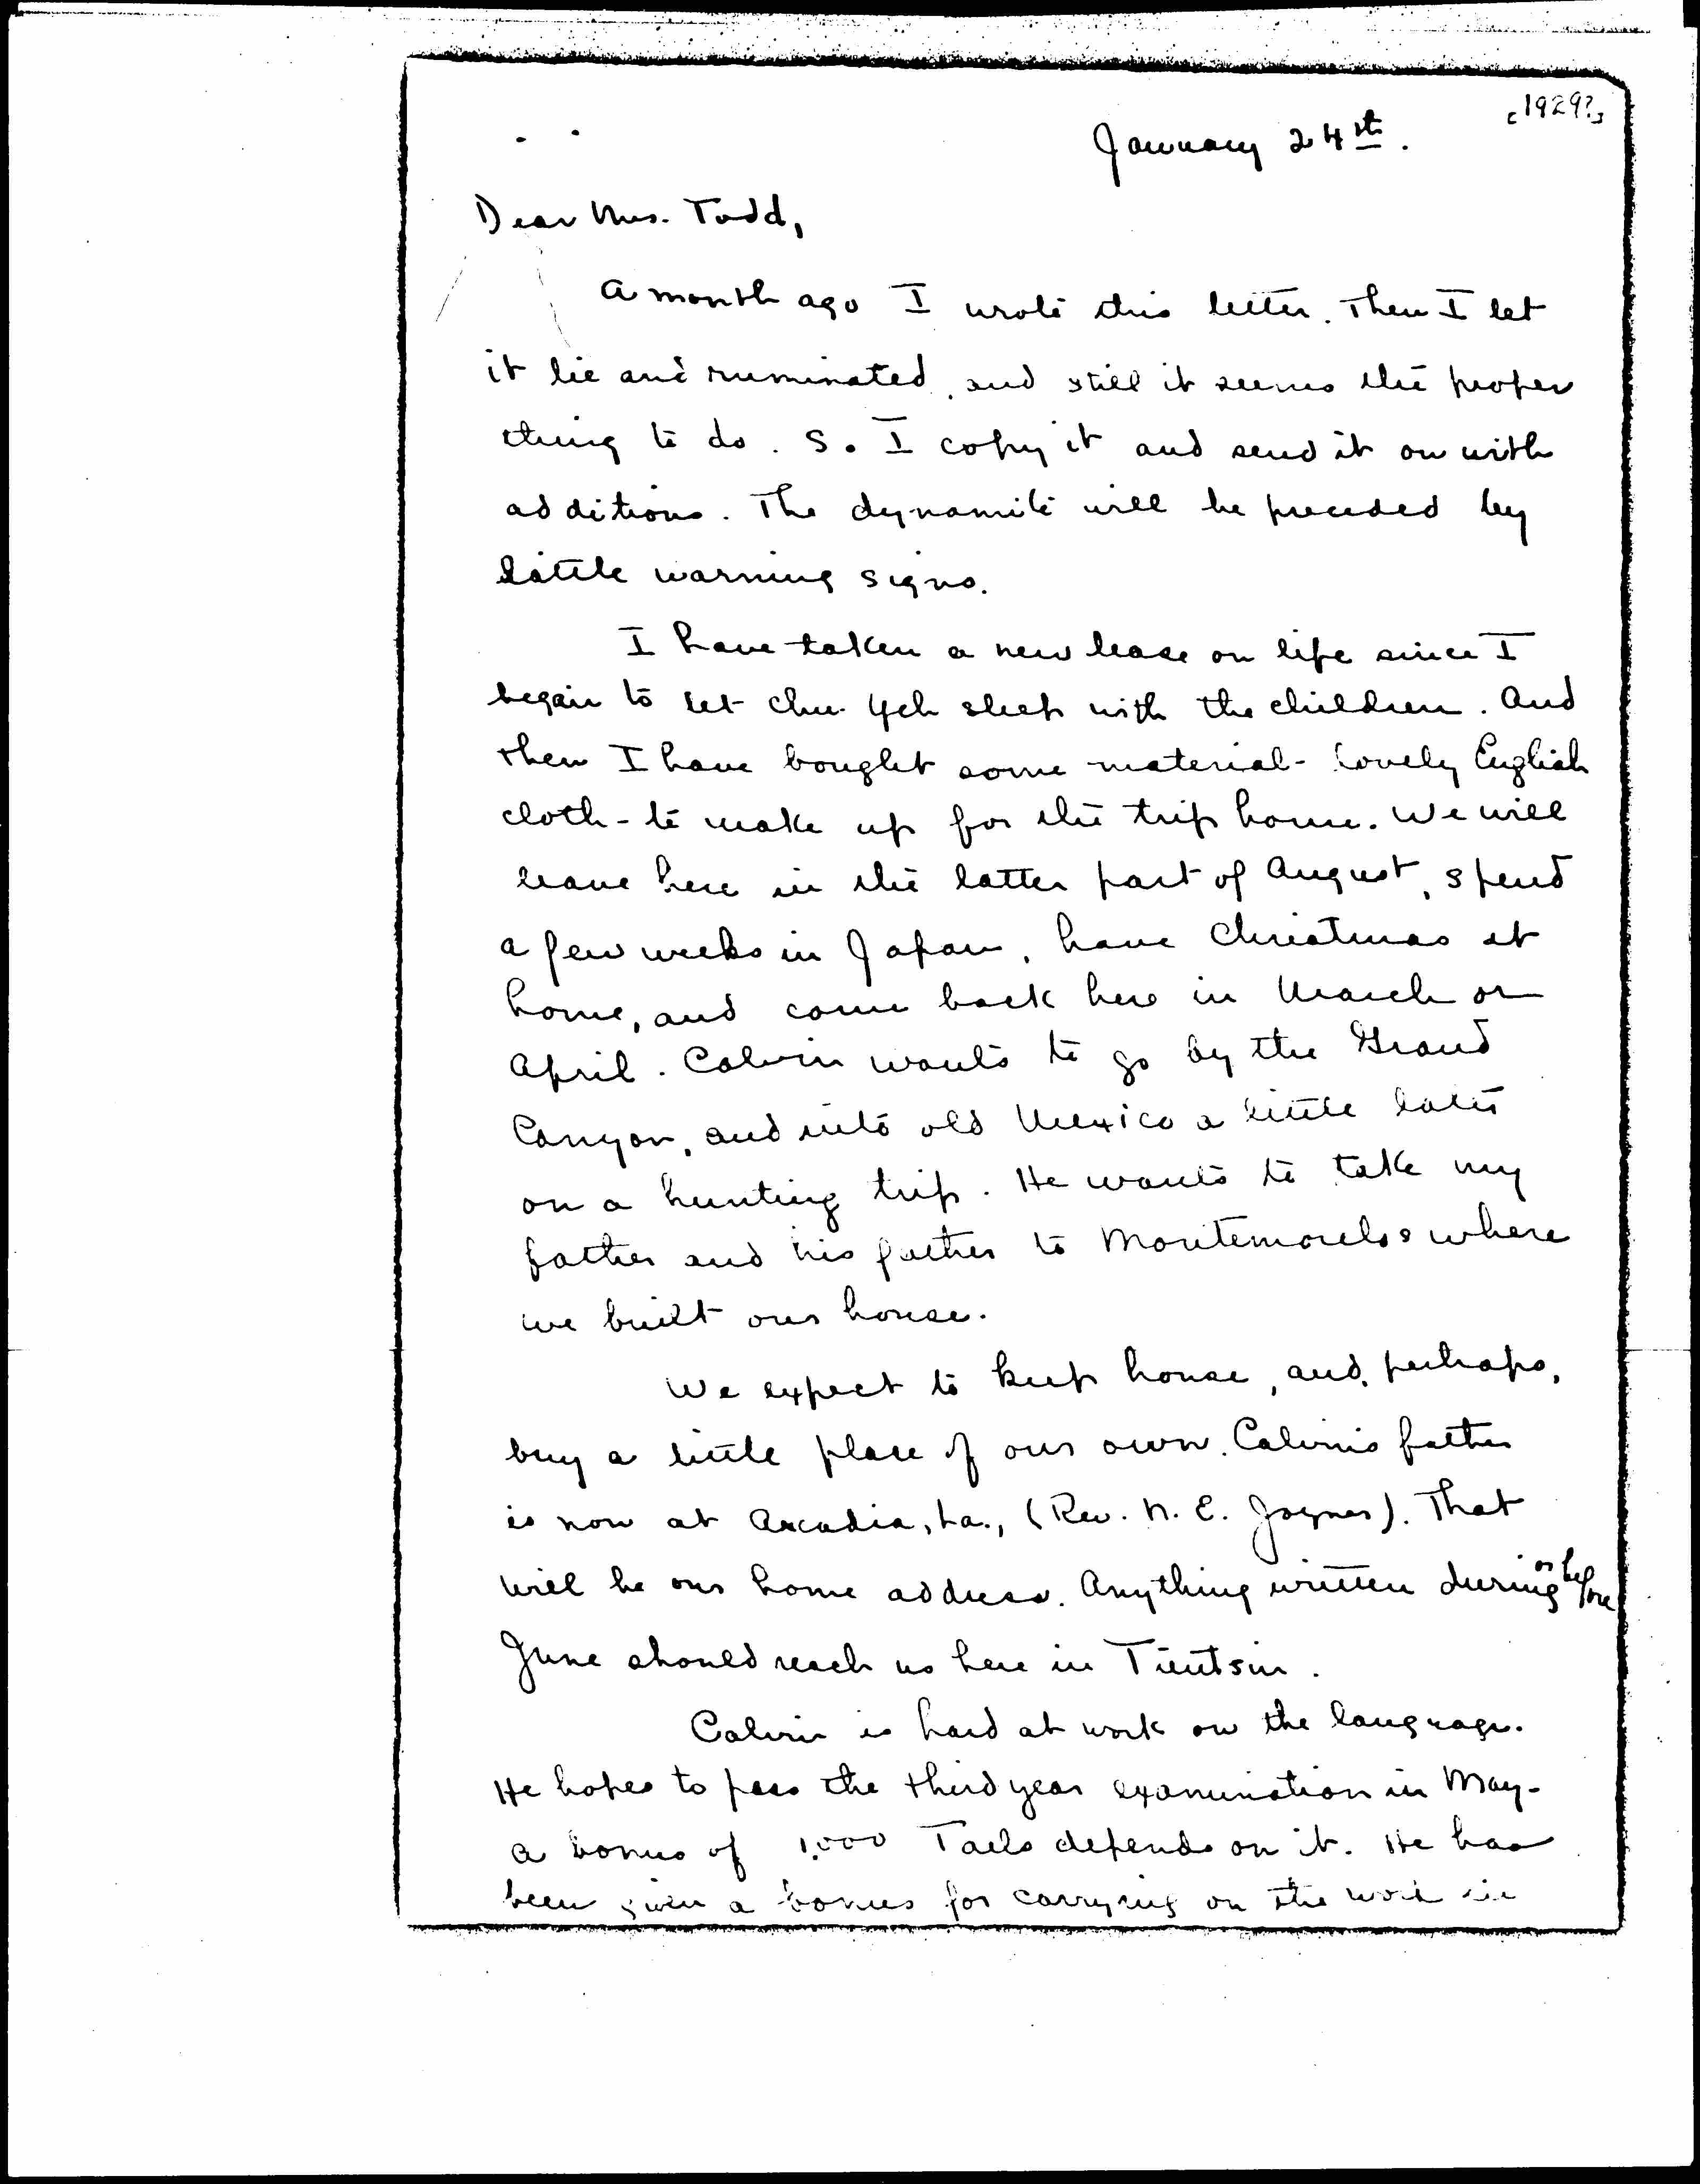 [1929?]
January 24th.
Dear Mrs. Todd,
A month ago I wrote this letter. Then I let
it lie and ruminated, and still it seems the proper
thing to do. So I copy it and send it on with
additions. The dynamite will be preceded by
little warning signs.
I have taken a new lease on life since I
began to let Chu Yeh sleep with the children. And
then I have bought some material - lovely English
cloth - to make up for the trip home. We will
leave here in the latter part of August, spend
a few weeks in Japan, have Christmas at
home, and come back here in March or
April. Calvin wants to go by the Grand
Canyon, and into old Mexico a little later
on a hunting trip. He wants to take my
father and his father to Montemorelos where
we built our house.
We expect to keep house, and, perhaps,
buy a little place of our own. Calvin's father
is now at Arcadia, La., (Rev. N. E. Joyner). That
will be our home address. Anything written during or before
June should reach us here in Tientsin.
Calvin is hard at work on the language.
He hopes to pass the third year examination in May -
a bonus of 1,000 Taels depends on it. He has
been given a bonus for carrying on the work in